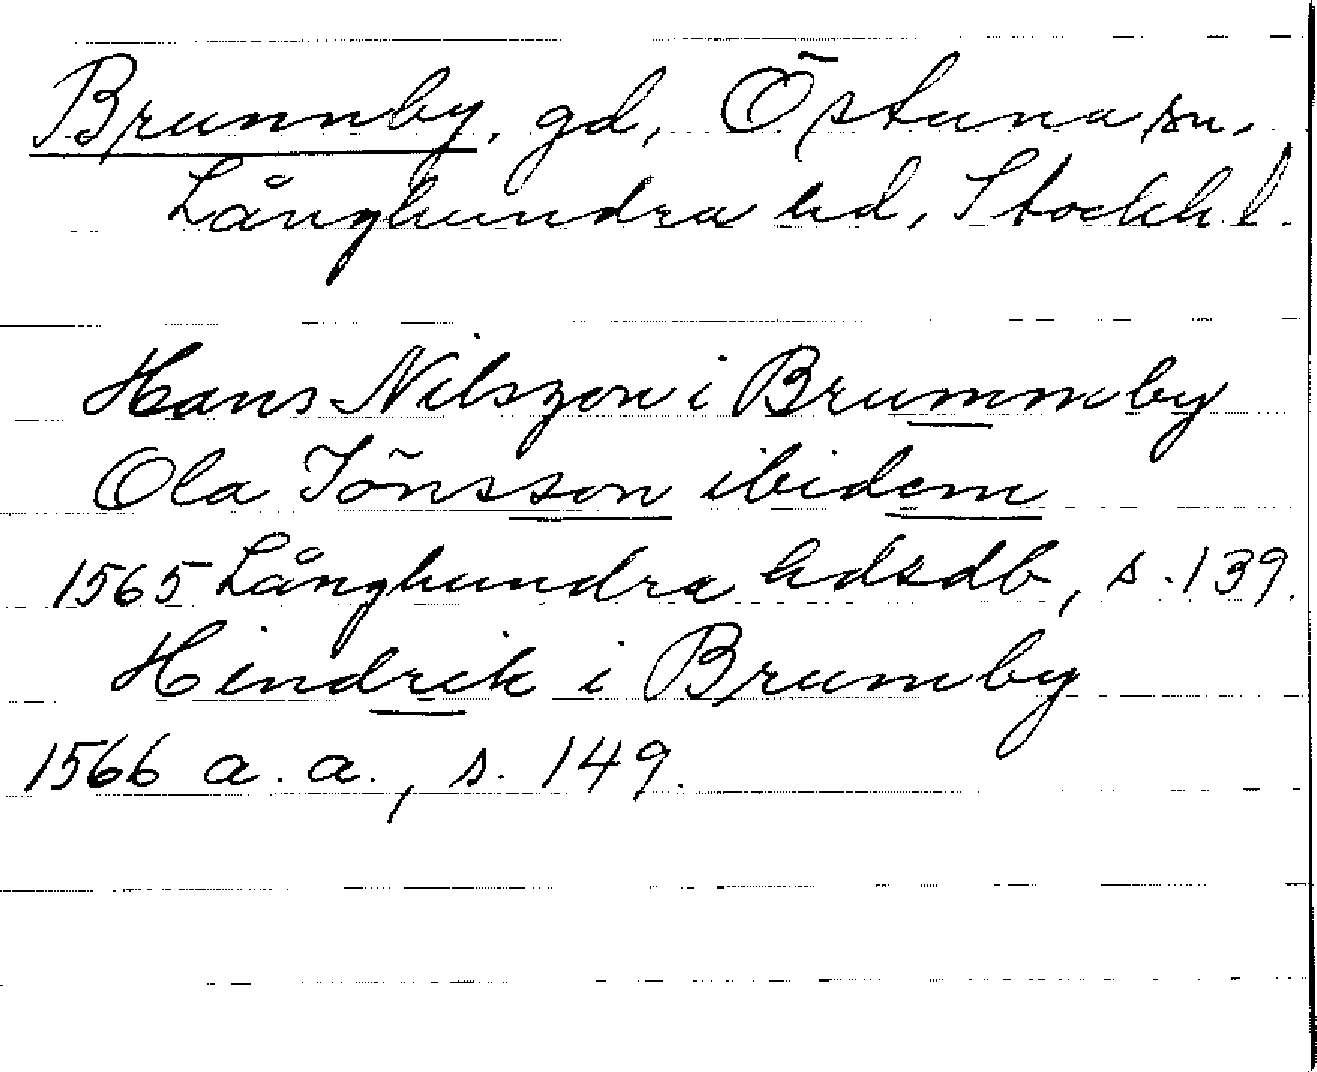 Brunnby, gd, Östuna sn,
Långhundra hd, Stockh. l.
Hans Nilszon i Brummby
Ola Jönsson ibidem
1565 Långhundra hdsdb, s. 139.
Hindrik i Brumby
1566 a. a., s. 149.